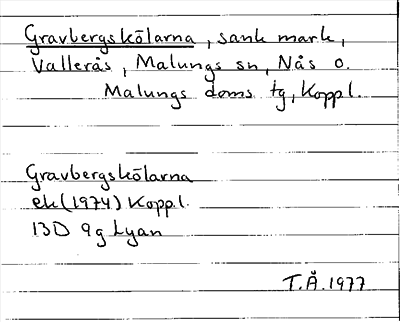 Gravbergskölarna, sank mark,
Vallerås, Malungs sn, Nås o.
Malungs doms tg, Koppl.
Gravbergskölarna
ek (1974) Koppl.
13D 9g Lyan
T.Å. 1977